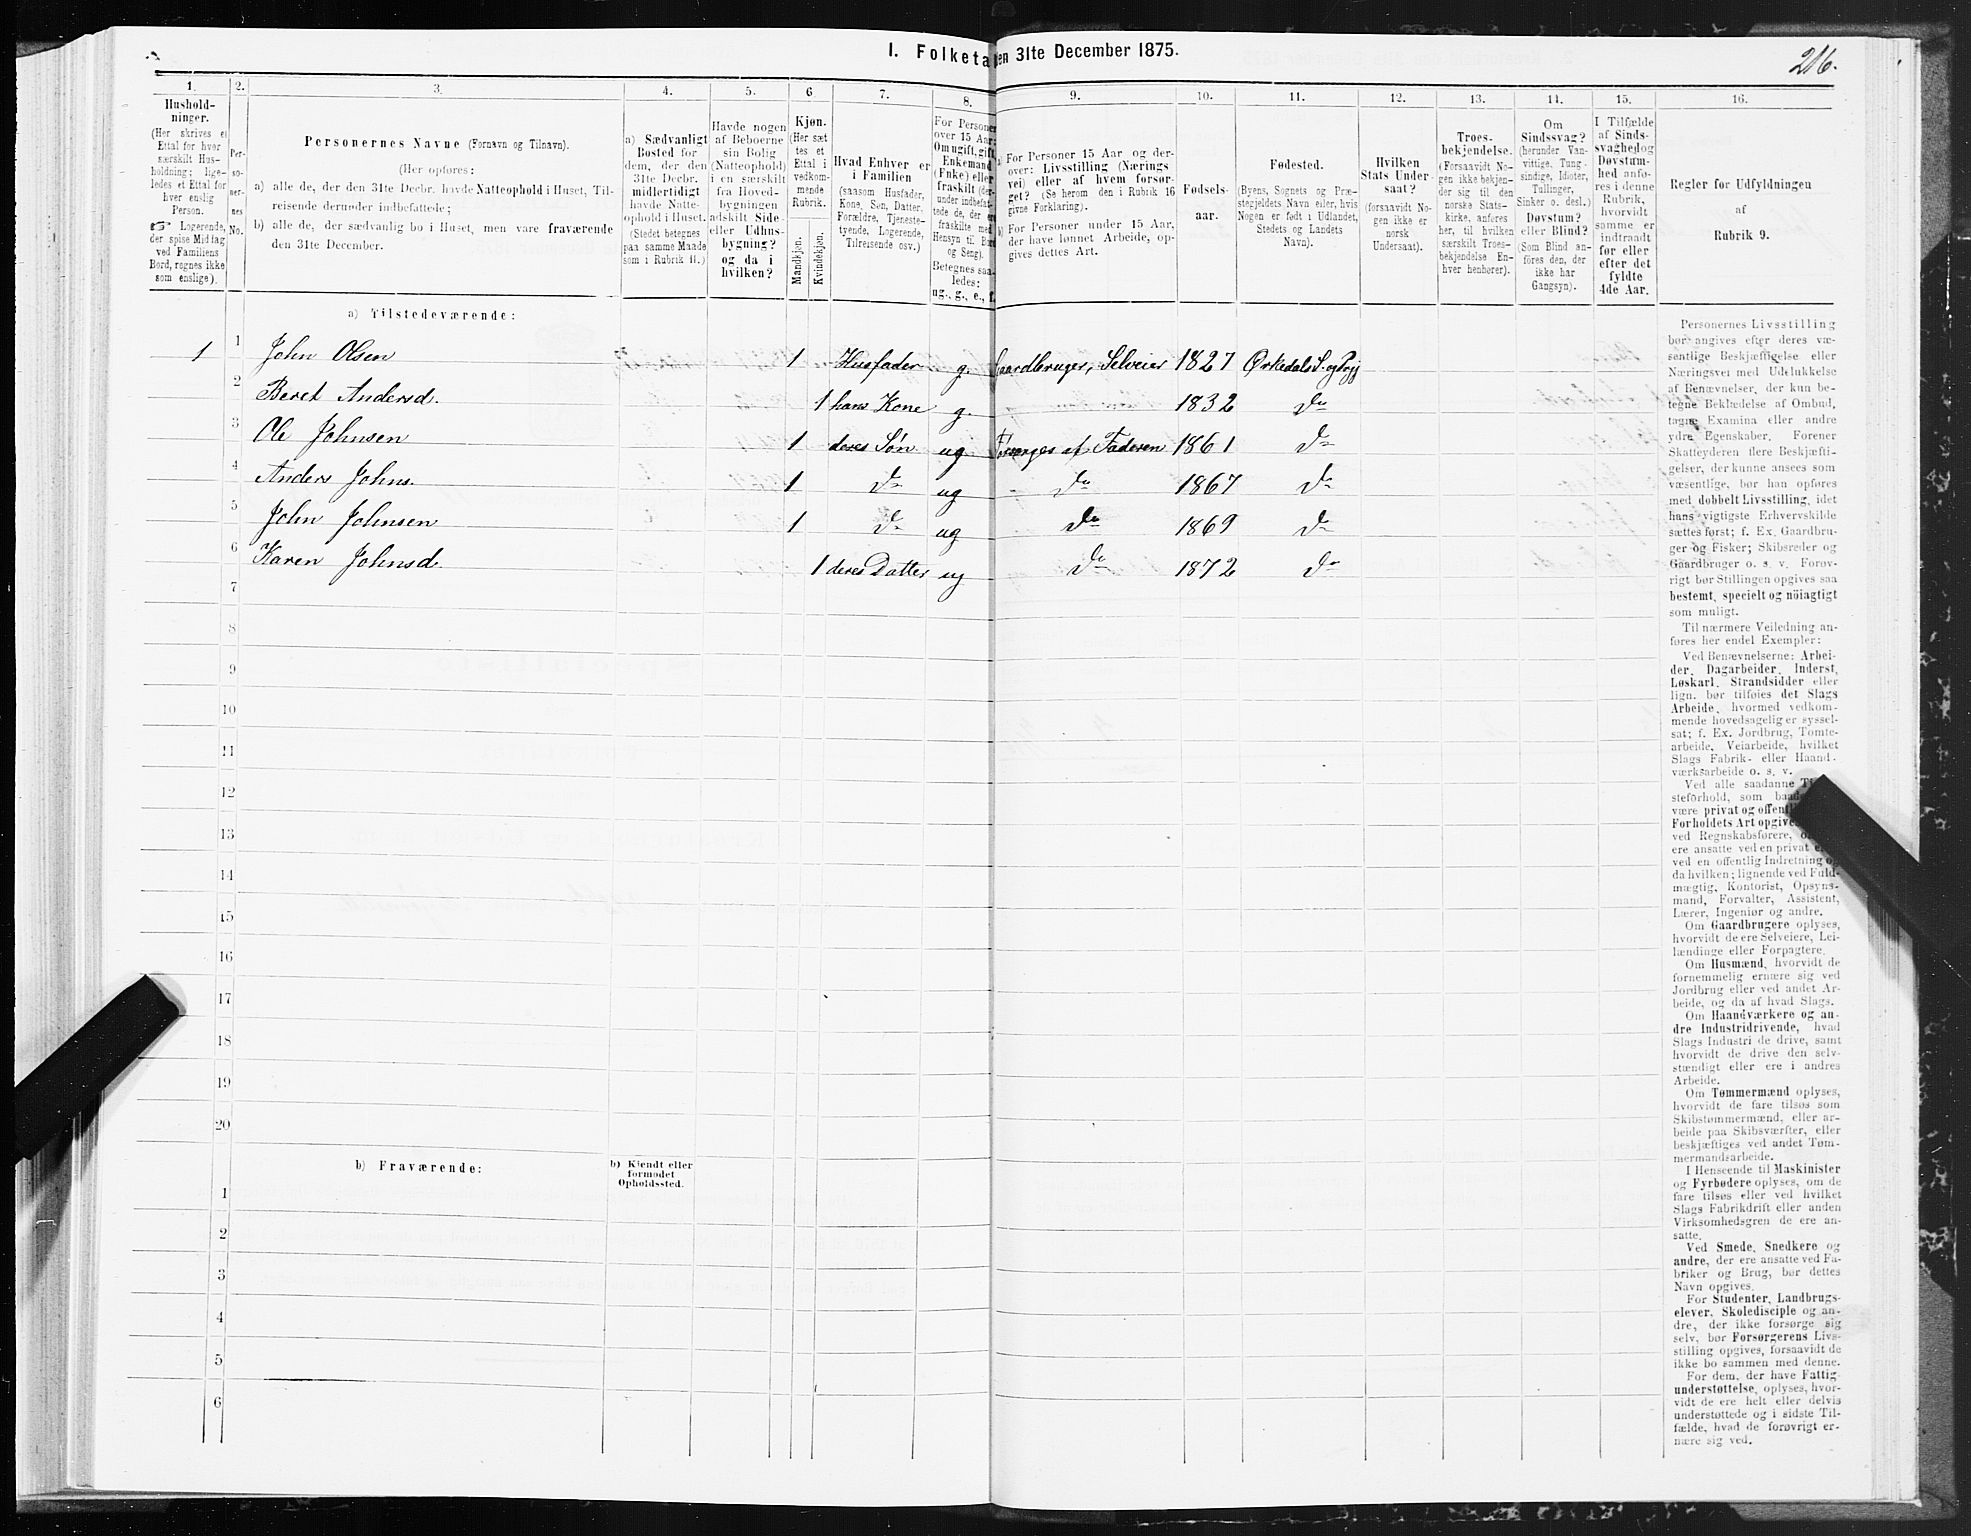 I. Folketa
den 31te December 1875.
216.
1.
Hushold-
ninger.
(Her skrives et
Ettal for hver
særskilt Hus-
holdning; lige-
ledes et Ettal for
hver enslig
Person.
Logerende,
der spise Middag
ved Familiens
Bord, regnes ikke
som enslige).
2.
Per-
so-
ner-
nes
No.
3.
Personernes Navne (Fornavn og Tilnavn).
(Her opføres:
a) alle de, der den 31te Decbr. havde Natteophold i Huset, Til-
reisende derunder indbefattede;
b) alle de, der sædvanlig bo i Huset, men vare fraværende
den 31te December.
4.
a) Sædvanligt
Bosted for
dem, der den
31te Decbr.
midlertidigt
havde Natte-
ophold i Huset.
(Stedet betegnes
paa samme Maade
som i Rubrik 11.)
5.
Havde nogen
af Beboerne
sin Bolig
(Natteophold)
i en særskilt
fra Hoved-
bygningen
adskilt Side-
eller Udhus-
bygning?
og da i
hvilken?
6
Kjøn.
(Her sæt
tes et
Ettal i
vedkom-
mende
Rubrik.
Mandkjøn.
Kvindekjøn.
7.
Hvad Enhver er
i Familien
(saasom Husfader,
Kone, Søn, Datter,
Forældre, Tjeneste-
tyende, Logerende,
Tilreisende osv.)
8.
For Personer
over 15 Aar:
Om ugift, gift,
Enkemand
(Enke) eller
fraskilt (der-
under indbefat-
tede de, der ere
fraskilte med
Hensyn til Bord
og Seng).
Betegnes saa-
ledes:
ug., g., e., f.
9.
a) For Personer 15 Aar og der-
over: Livsstilling (Nærings-
vei) eller af hvem forsør-
get? (Se herom den i Rubrik 16
givne Forklaring).
b) For Personer under 15 Aar,
der have lønnet Arbeide, op-
gives dettes Art.
10.
Fødsels-
aar.
11.
Fødested.
(Byens, Sognets og Præ-
stegjeldets Navn eller, hvis
Nogen er født i Udlandet,
Stedets og Landets
Navn).
12.
Hvilken
Stats Under-
saat?
(forsaavidt No-
gen ikke er
norsk
Undersaat).
13.
Troes-
bekjendelse.
(Forsaavidt No-
gen ikke bekjen-
der sig til den
norske Stats-
kirke, anføres
her, til hvilken
særskilt Troes-
bekjendelse En-
hver henhører).
14.
Om
Sindssvag?
(herunder Van-
vittige, Tung-
sindige, Idioter,
Tullinger,
Sinker o. desl.)
Døvstum?
eller Blind?
(Som Blind an-
føres den, der
ikke har
Gangsyn).
15.
I Tilfælde
af Sinds-
svaghed og
Døvstum-
hed anfø-
res i denne
Rubrik,
hvorvidt
samme er
indtraadt
før eller
efter det
fyldte
4de Aar.
16.
Regler for Udfyldningen
af
Rubrik 9.
a) Tilstedeværende:
1 1 John Olsen 1 Husfader g. Gaardbruger, Selveier 1827 Ørkedals S. og Prgj
2 Beret Andersd. 1 hans Kone g. 1832 do
3 Ole Johnsen 1 deres Søn ug. Forsørges af Faderen 1861 do
4 Anders Johns. 1 do ug do 1867 do
5 John Johnsen 1 do ug do 1869 do
6 Karen Johnsd. 1 deres Datter ug do 1872 do
7
8
9
10
11
12
13
15
16
17
18
19
20
b) Fraværende:
b) Kjendt eller
formodet
Opholdssted.
1
2
3
4
5
6
Personernes Livsstilling
bør angives efter deres væ-
sentlige Beskjæftigelse eller
Næringsvei med Udelukkelse
af Benævnelser, der kun be-
tegne Beklædelse af Ombud,
tagne Examina eller andre
ydre Egenskaber. Forener
Skatteyderen flere Beskjæfti-
gelser, der kunne ansees som
væsentlige, bør han opføres
med dobbelt Livsstilling, idet
hans vigtigste Erhvervskilde
sættes først; f. Ex. Gaardbru-
ger og Fisker; Skibsreder og
Gaardbruger o. s. v. Forøv-
rigt bør Stillingen opgives saa
bestemt, specielt og nöiagtigt
som muligt.
Til nærmere Veiledning an-
føres her endel Exempler:
Ved Benævnelserne: Arbei-
der, Dagarbeider, Inderst,
Løskarl, Strandsidder eller
lign. bør tilføies det Slags
Arbeide, hvormed vedkom-
mende hovedsagelig er syssel-
sat; f. Ex. Jordbrug, Tomte-
arbeide, Veiarbeide, hvilket
Slags Fabrik- eller Haand-
værksarbeide o. s. v.
Ved alle saadanne
steforhold, som
være privat og
Forholdets Art
ved Regnskabsførere,
ere ansatte ved en privat
ved en offentlig Indretning og
da hvilken; lignende ved Fuld-
mægtig, Kontorist, Opsyns-
mand, Forvalter, Assistent,
Lærer, Ingeniør og andre.
Om Gaardbrugere oplyses,
hvorvidt de ere Selveiere, Lei-
lændinge eller Forpagtere.
Om Husmænd, hvorvidt de
fornemmelig ernære sig ved
Jordbrug eller ved andet Ar-
beide, og da af hvad Slags.
Om Haandværkere og an-
dre Industridrivende, hvad
Slags Industri de drive, samt
hvorvidt de drive den selv-
stændigt eller ere i andres
Arbeide.
Om Tømmermænd oplyses,
hvorvidt de fare tilsøs som
Skibstømmermænd, eller ar-
beide paa Skibsværfter, eller
beskjæftiges ved andet Tøm-
mermandsarbeide.
I Henseende til Maskinister
og Fyrbødere oplyses, om de
fare tilsøs eller ved hvilket
Slags Fabrikdrift eller anden
Virksomhedsgren de ere an-
satte.
Ved Smede, Snedkere og
andre, der ere ansatte ved Fa-
briker og Brug, bør dettes
Navn opgives.
For Studenter, Landbrugs-
elever, Skoledisciple og an-
dre, der ikke forsørge sig
selv, bør Forsørgerens Livs-
stilling opgives, forsaavidt de
ikke bo sammen med denne.
For dem, der have Fattig-
understøttelse, oplyses, hvor-
vidt de ere helt eller delvis
understøttede og i sidste Til-
fælde, hvad de forøvrigt er-
nære sig ved.